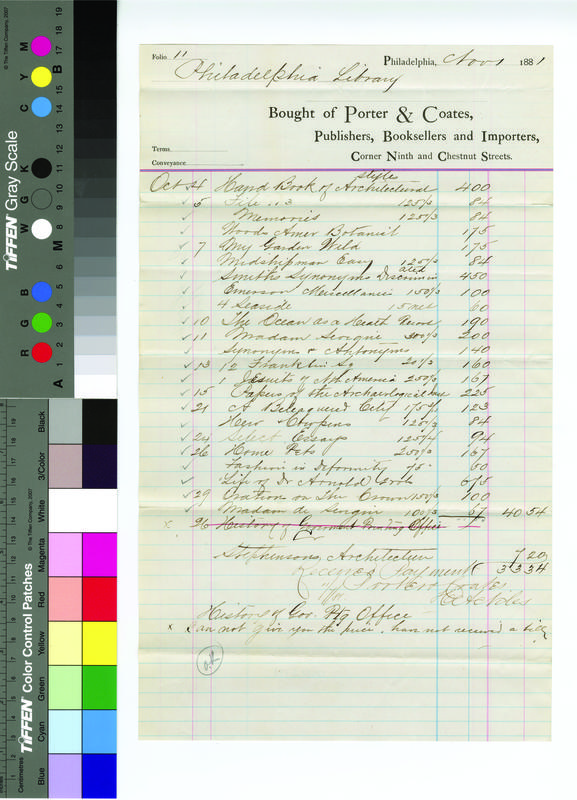 Folio 11
Philadelphia, Nov 1 1881
Philadelphia Library
Bought of Porter & Coates,
Publishers, Booksellers and Importers,
Corner Ninth and Chestnut Streets.
Terms
Conveyance
Oct 4 Hand Book of Architectural Styles 400
✓ 5 File 113 125/3 84
✓ Memories 125/3 84
✓ Woods Amer Botanist 175
✓ 7 My Garden Wild 175
✓ Midshipman Easy 125/3 84
✓ Smiths Synonyms Discriminated 450
✓ Emerson Miscellanies 150/3 100
✓ 4 Seaside 15 net 60
✓ 10 The Ocean as a Health Resort 190
✓ 11 Madam 300/3 200
✓ Synonyms & Antonyms 140
✓ 13 10 Franklin Sq 20/3 160
✓ 1 Jesuits of Nth America 250/3 167
✓ 15 Papers of the Archaeological 225
✓ 21 A Beleaguered City 175/3 123
✓ Heir 125/3 84
✓ 24 Select Essays 125/4 94
✓ 26 Home Pets 250/3 167
✓ Fashion in Deformity 75 60
✓ Life of Dr Arnold 675
✓ 29 Oration on The Crown 150/3 100
✓ Madam de 100/3 67 40.54
x 26 History of Goverment Printing Office
Stephensons, Architecture 7 20
Received Payment 33 34
Porter & Coates
History of Gov. Ptg Office
x Can not give you the price, has not received a bill
TIFFEN Gray Scale
© The Tiffen Company, 2007
R G B W G K C Y M
A 1 2 3 4 5 6 M 8 9 10 11 12 13 14 15 B 17 18 19
TIFFEN Color Control Patches
© The Tiffen Company, 2007
Centimetres
Blue Cyan Green Yellow Red Magenta White 3/Color Black